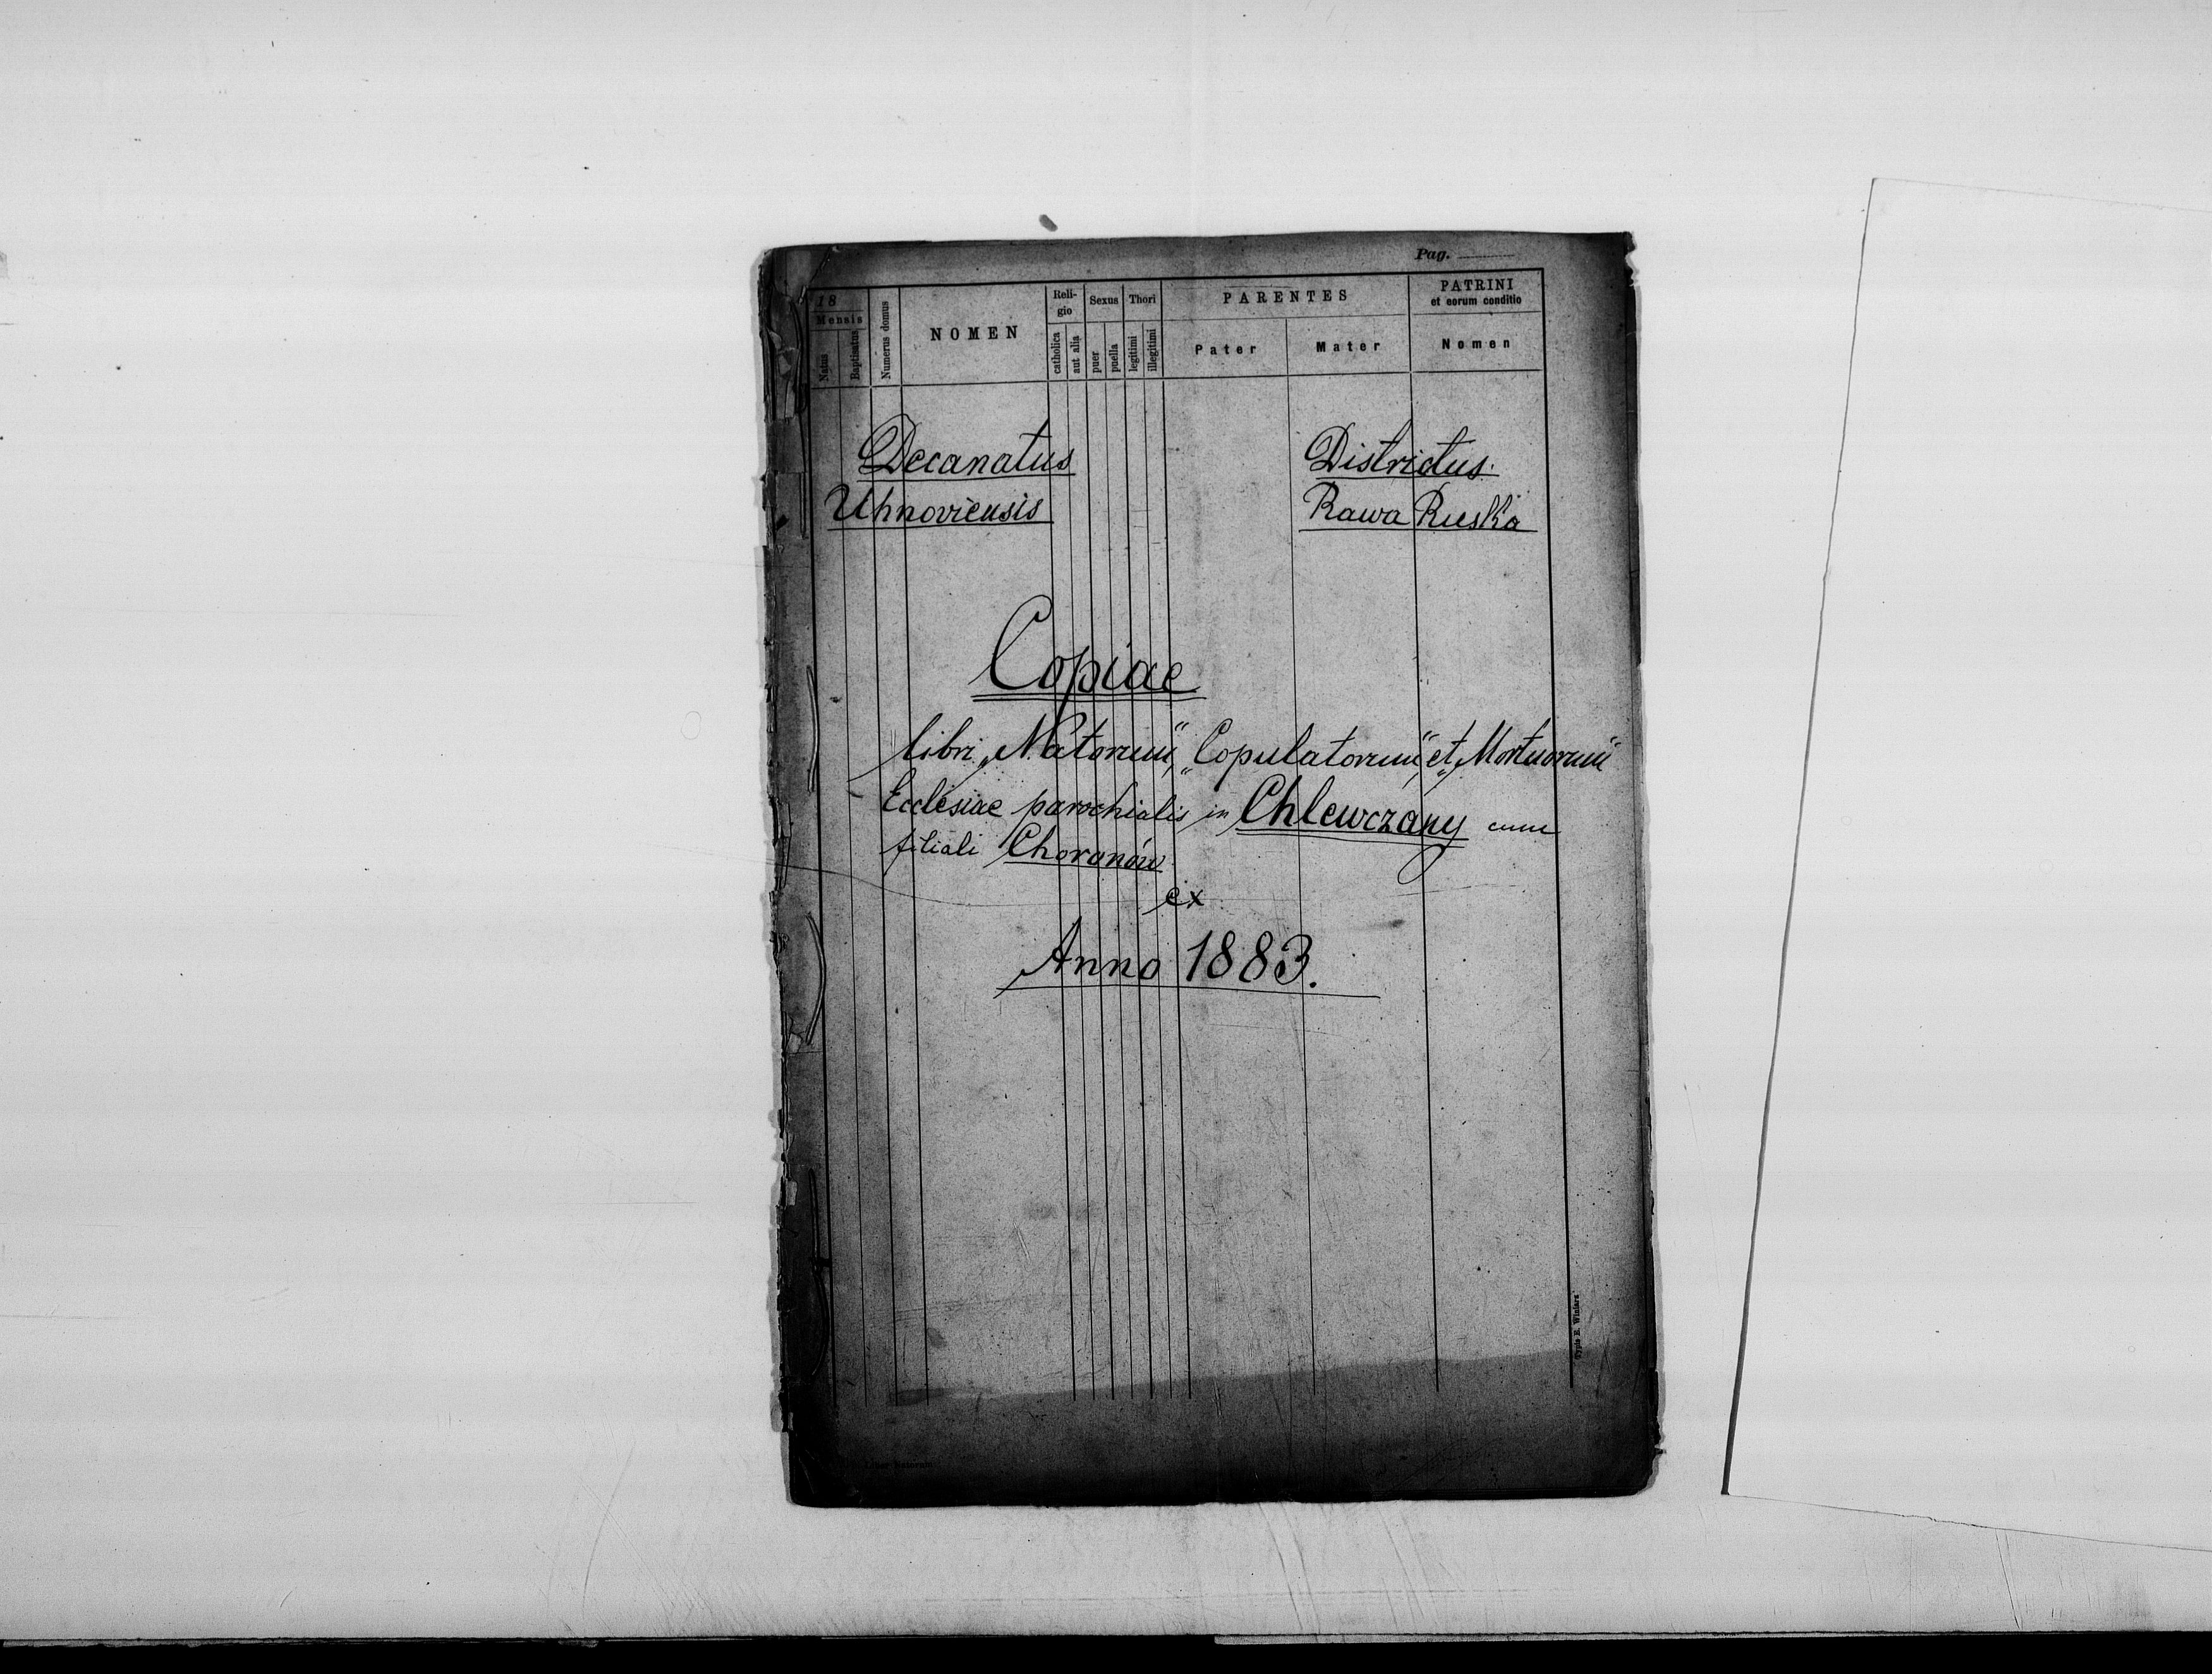 Pag.
18
Mensis
Natus
Baptisatus
Numerus domus
NOMEN
Religio
catholica
aut alia
Sexus
puer
puella
Thori
legitimi
illegitimi
PARENTES
Pater
Mater
PATRINI
et eorum conditio
Nomen
Decanatus
Uhnoviensis
Districtus
Rawa Ruska
Copiae
libri „Natorum“, „Copulatorum“ et „Mortuorum“
Ecclesiae parochialis in Chlewczany cum
filiali Choronów
ex
Anno 1883.
Typis E. Winiarz